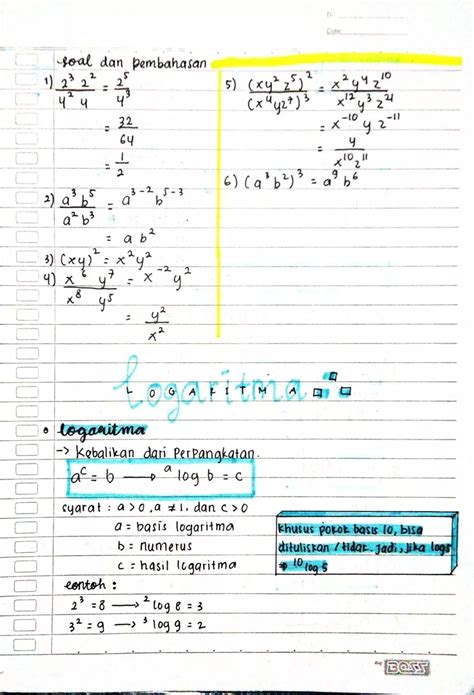 No:
Date:
soal dan pembahasan
1) 2³ 2² / 4² 4 = 2⁵ / 4³
= 32 / 64
= 1 / 2
2) a³ b⁵ / a² b³ = a³⁻² b⁵⁻³
= a b²
3) (xy)² = x² y²
4) x⁶ y⁷ / x⁸ y⁵ = x⁻² y²
= y² / x²
5) (xy² z⁵)² / (x⁴ y z⁷)³ = x² y⁴ z¹⁰ / x¹² y³ z²¹
= x⁻¹⁰ y z⁻¹¹
= y / x¹⁰ z¹¹
6) (a³ b²)³ = a⁹ b⁶
logaritma
LOGARITMA
• logaritma
-> Kebalikan dari Perpangkatan.
aᶜ = b → ᵃlog b = c
syarat : a > 0, a ≠ 1. dan c > 0
a = basis logaritma
b = numerus
c = hasil logaritma
contoh :
2³ = 8 → ²log 8 = 3
3² = 9 → ³log 9 = 2
Khusus pokok basis 10, bisa
dituliskan / tidak. jadi, jika log 5
⇒ ¹⁰log 5
BOSS